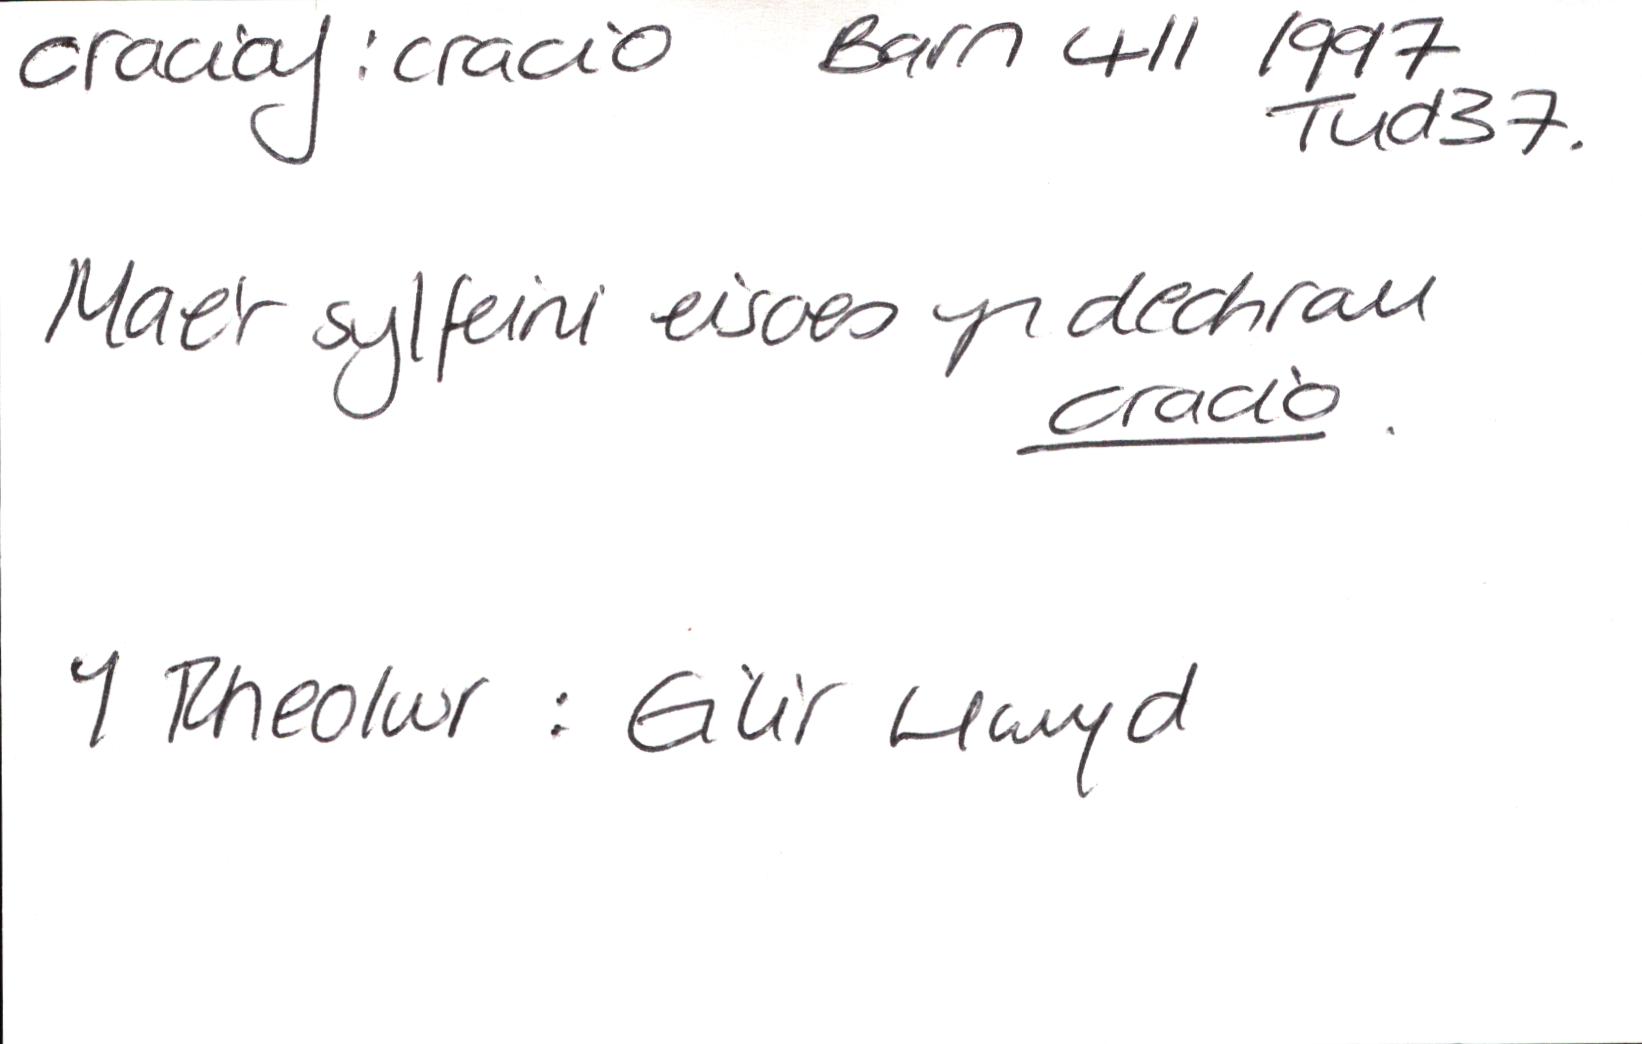 craciaf : cracio Barn 411 1997
Tud 37.
Mae'r sylfeini eisoes yn dechrau
cracio.
Y Rheolwr : Elir Llwyd